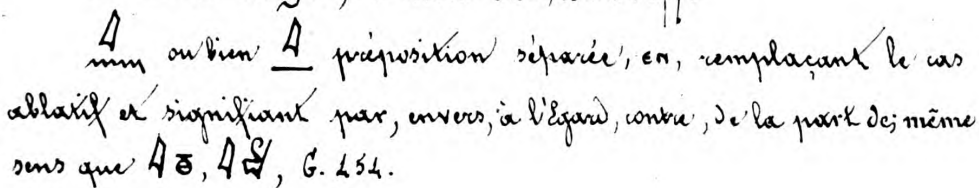 ou bien préposition séparée, en, remplaçant le cas
ablatif et signifiant par, envers, à l'Égard, contre, de la part de; même
sens que , G. 454.